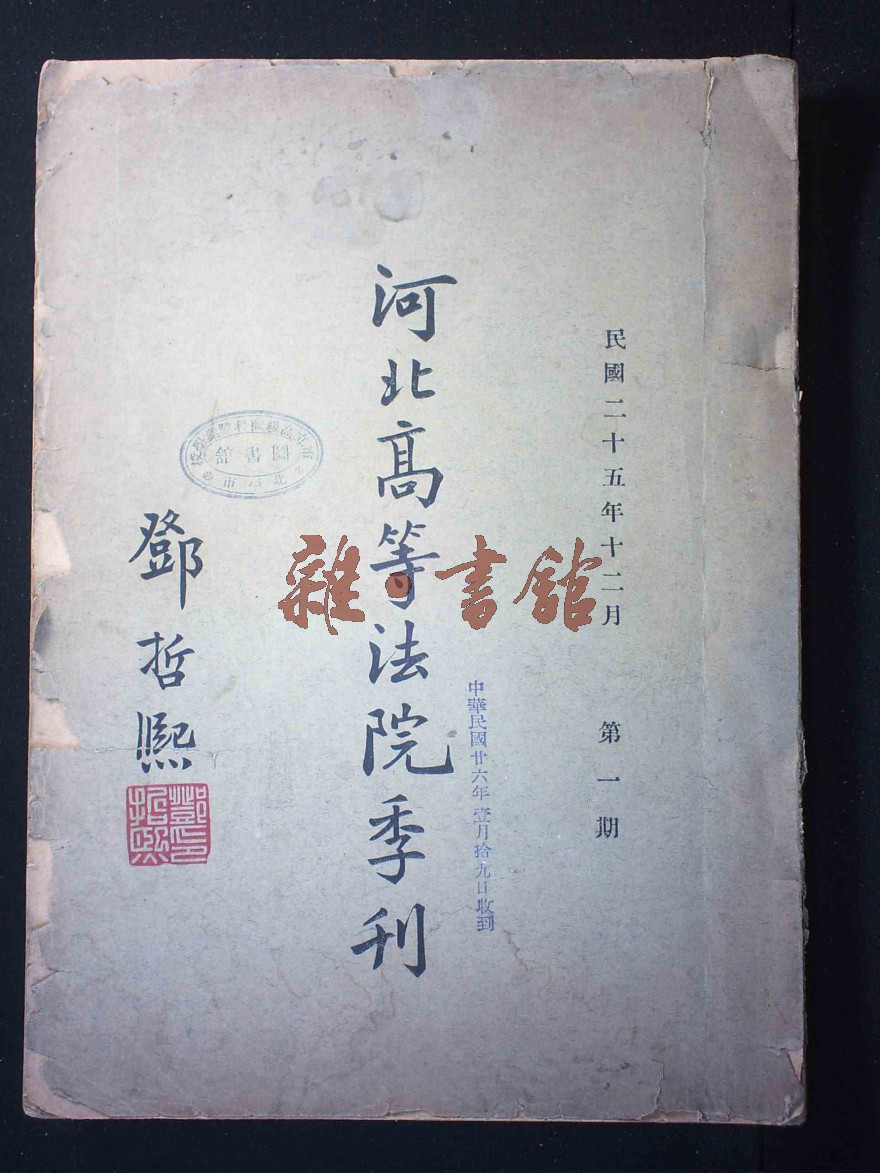 民國二十五年十二月　第一期
中華民國廿六年壹月拾九日收到
河北高等法院季刊
雜·書館
圖書館
鄧哲熙
鄧哲熙印